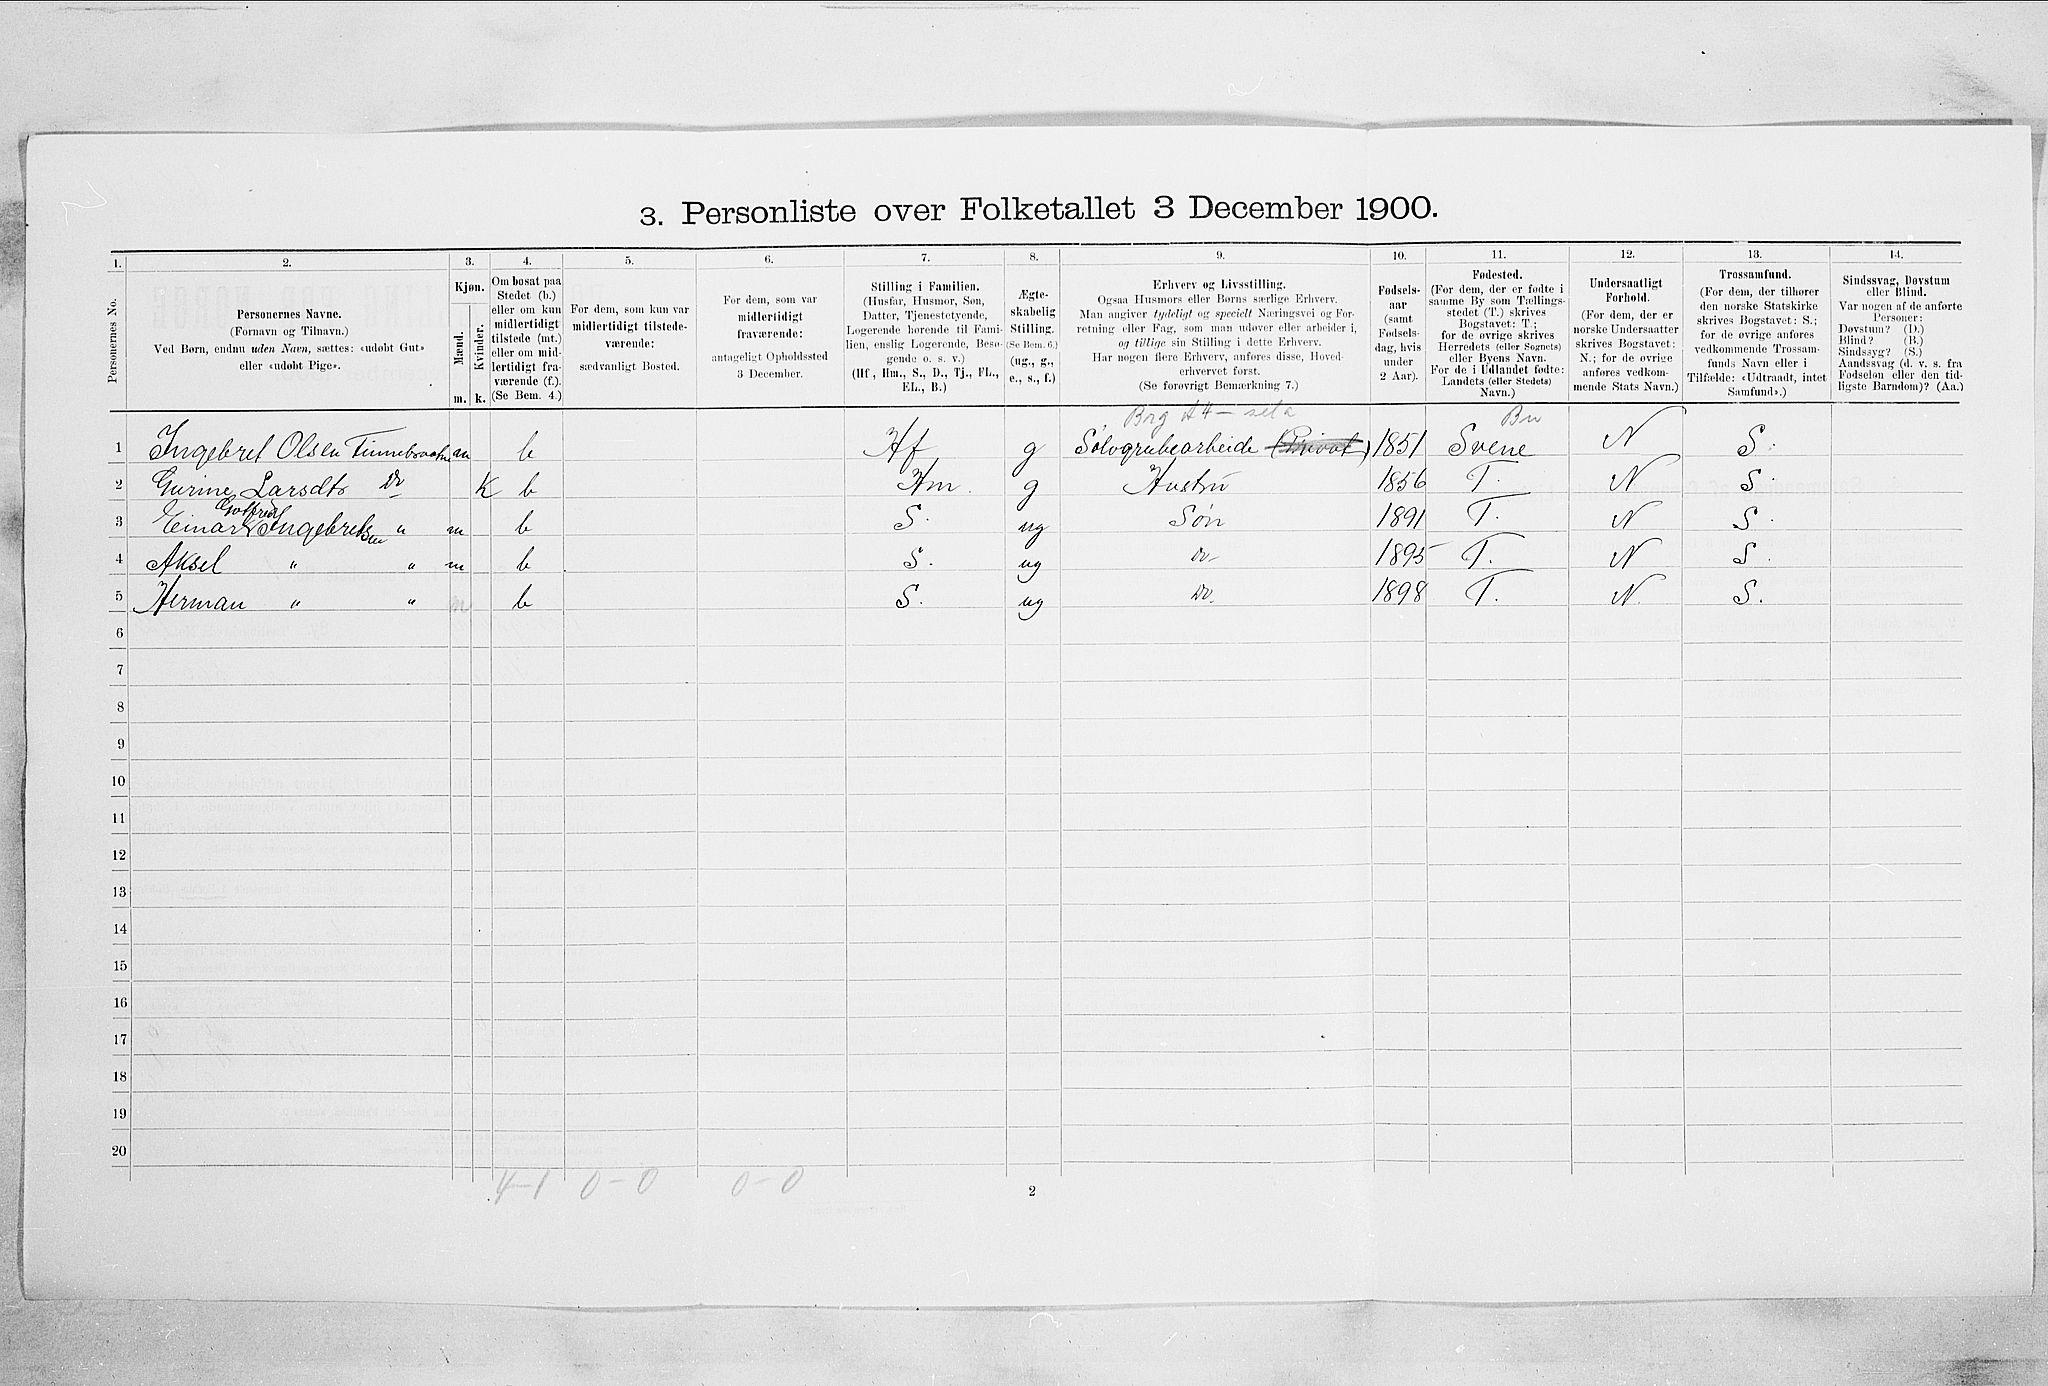 3. Personliste over Folketallet 3 December 1900.
1. 2. 3. 4. 5. 6. 7. 8. 9. 10. 11. 12. 13. 14.
Personernes No.
Personernes Navne.
(Fornavn og Tilnavn.)
Ved Børn, endnu uden Navn, sættes: «udøbt Gut»
eller «udøbt Pige».
Kjøn.
Mænd.
Kvinder.
m. k.
Om bosat paa
Stedet (b.)
eller om kun
midlertidigt
tilstede (mt.)
eller om mid-
lertidigt fra-
værende (f.).
(Se Bem. 4.)
For dem, som kun var
midlertidigt tilstede-
værende:
sædvanligt Bosted.
For dem, som var
midlertidigt
fraværende:
antageligt Opholdssted
3 December.
Stilling i Familien.
(Husfar, Husmor, Søn,
Datter, Tjenestetyende,
Logerende hørende til Fami-
lien, enslig Logerende, Besø-
gende o. s. v.)
(Hf., Hm., S., D., Tj., FL.,
EL., B.)
Ægte-
skabelig
Stilling.
(Se Bem. 6.)
(ug., g.,
e., s., f.)
Erhverv og Livsstilling.
Ogsaa Husmors eller Børns særlige Erhverv.
Man angiver tydeligt og specielt Næringsvei og For-
retning eller Fag, som man udøver eller arbeider i,
og tillige sin Stilling i dette Erhverv.
Har nogen flere Erhverv, anføres disse, Hoved-
erhvervet først.
(Se forøvrigt Bemærkning 7.)
Fødsels-
aar
(samt
Fødsels-
dag, hvis
under
2 Aar).
Fødested.
(For dem, der er fødte i
samme By som Tællings-
stedet (T.) skrives
Bogstavet: T.;
for de øvrige skrives
Herredets (eller Sognets)
eller Byens Navn.
For de i Udlandet fødte:
Landets (eller Stedets)
Navn.)
Undersaatligt
Forhold.
(For dem, der er
norske Undersaatter
skrives Bogstavet:
N.; for de øvrige
anføres vedkom-
mende Stats Navn.)
Trossamfund.
(For dem, der tilhører
den norske Statskirke
skrives Bogstavet: S.;
for de øvrige anføres
vedkommende Trossam-
funds Navn eller i
Tilfælde: «Udtraadt, intet
Samfund».)
Sindssvag, Døvstum
eller Blind.
Var nogen af de anførte
Personer:
Døvstum? (D.)
Blind? (B.)
Sindssyg? (S.)
Aandssvag (d. v. s. fra
Fødselen eller den tid-
ligste Barndom)? (Aa.)
1 Ingebret Olsen m b Hf g Sølvgrubearbeide (Privat) 1851 Svene N S.
2 Gurine Larsdtr Do K b Hm. g Hustru 1856 T. N S.
Gotfred
3 Einar Ingebretsen " m b S. ug Søn 1891 T. N S.
4 Aksel " " m b S. ug Do 1895 T. N S.
5 Herman " " m b S. ug Do. 1898 T. N. S.
6
7
8
9
10
11
12
13
14
15
16
17
18
19
20
4-1 0-0 0-0
2